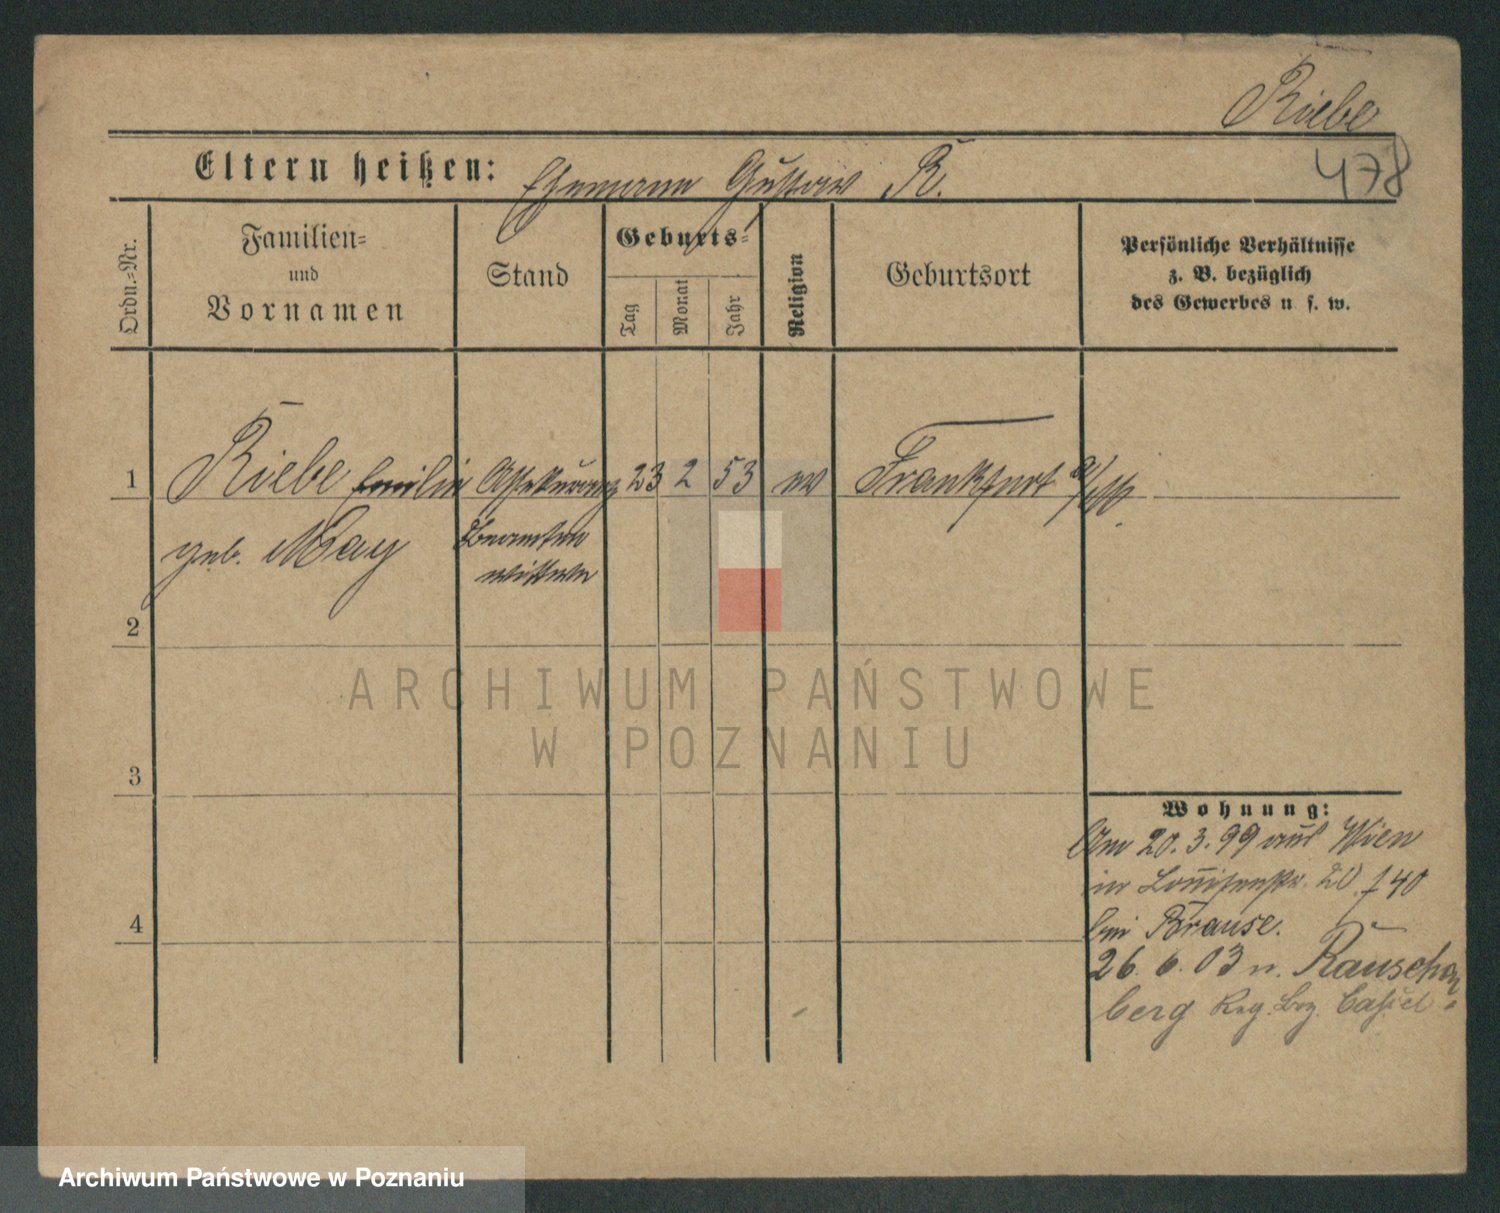 Riebe
478
Eltern heißen: Ehemann Gustav R.
Ordn.=Nr.
Familien=
und
Vornamen
Stand
Geburts=
Tag
Monat
Jahr
Religion
Geburtsort
Persönliche Verhältnisse
z. B. bezüglich
des Gewerbes u. s. w.
1 Riebe Emilie Assekuranz 23 2 53 Frankfurt a/M.
geb. May Beamten
wittwe
2
ARCHIWUM PAŃSTWOWE
W POZNANIU
3
Wohnung:
Am 20. 3. 99 aus Wien
in Louisenstr. 20 f 40
bei Krause.
4
26. 6. 03 n. Rauschen
berg Reg. Bez. Cassel
Archiwum Państwowe w Poznaniu